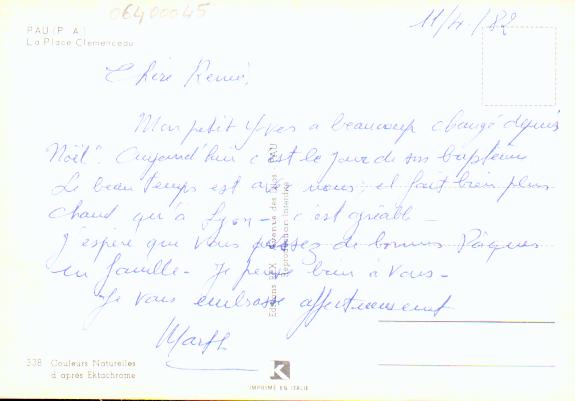 06400045
11/4/82
PAU (P. A.)
La Place Clemenceau
Chère Renée,
Mon petit Yves a beaucoup changé depuis
Noël". Aujourd'hui c'est le jour de son baptême
Le beau temps est avec nous, il fait bien plus
chaud qu'à Lyon - c'est agréable -
J'espère que vous passez de bonnes Pâques
en famille - Je pense bien à vous -
Je vous embrasse affectueusement
Marthe
Editions avenue des PAU
Reproduction Interdite
338 Couleurs Naturelles
d'après Ektachrome
K
IMPRIMÉ EN ITALIE